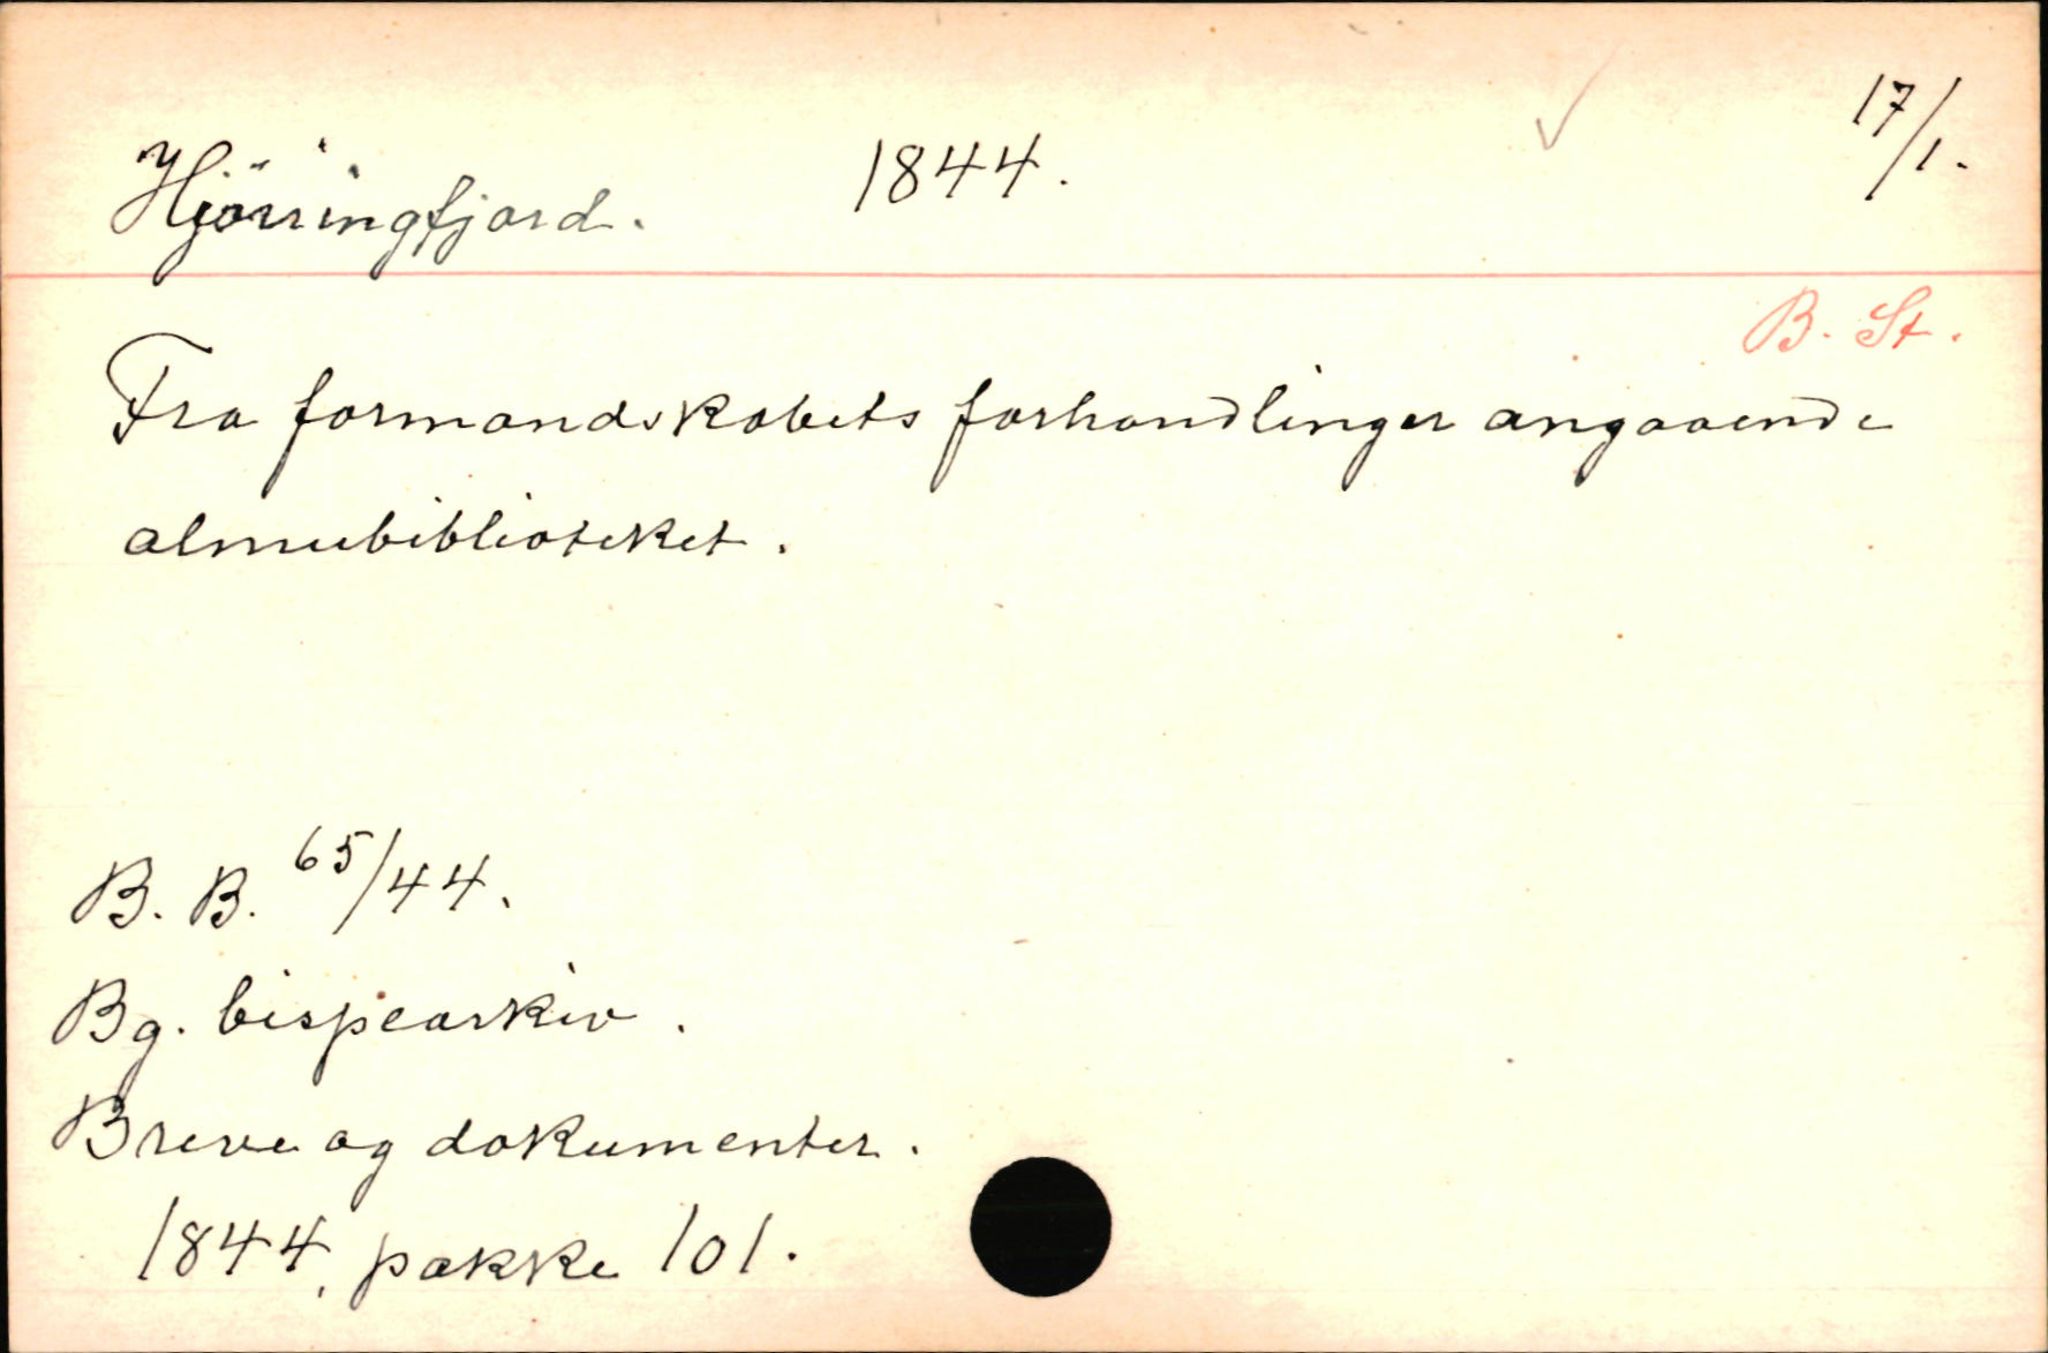 Hjörringfjord. 1844. 17/1.
B. St.
Fra formandskabets forhandlinger angaaende
almubiblioteket.
B. B. 65/44.
Bg. bispearkiv.
Breve og dokumenter.
1844, pakke 101.